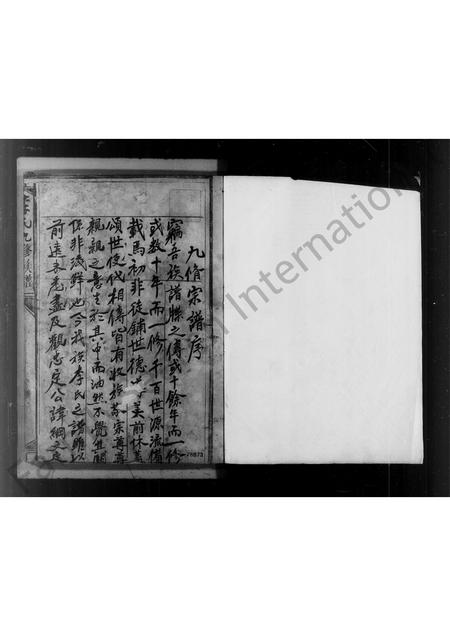 九脩宗譜序
竊吾族譜牒之傳或十餘年而一修
或数十年而一修千百世源流備
載焉初非徒鋪世德以美前休蓋
頌世使代相傳皆有收族敬宗尊尊
親親之意生於其中而油然不覺其關
係非淺鮮也今我族李氏之譜雖以
前遠者悉盡及觀忠定公諱綱之定
李氏九修族譜
76873
International